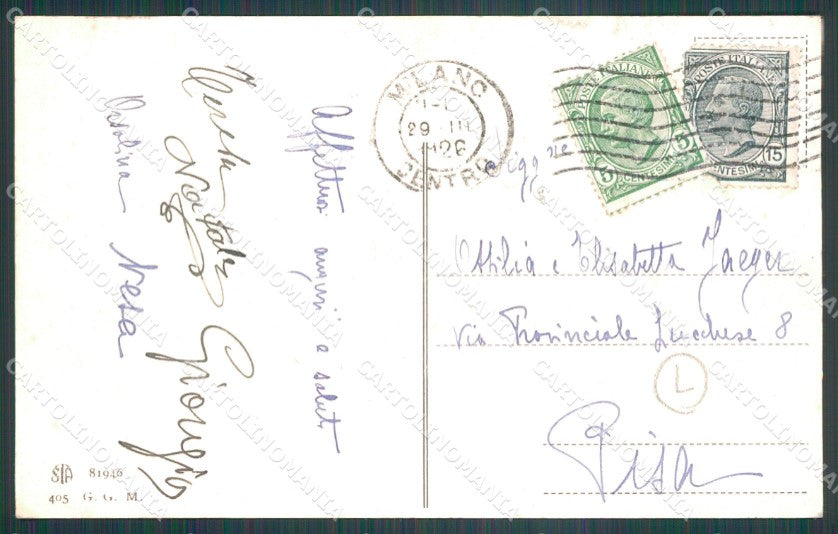 Affettuosi auguri e saluti
Teresa
Natale
Giorgio
Orsolina Nesa
MILANO
29 III
1926
CENTRO
POSTE ITALIANE
5 CENTESIMI 5
POSTE ITALIANE
15
CENTESIMI
Ottilia e Elisabetta Jaeger
Via Provinciale Lucchese 8
L
Pisa
STA 81946
405 G. G. M.
CARTOLINOMANIA